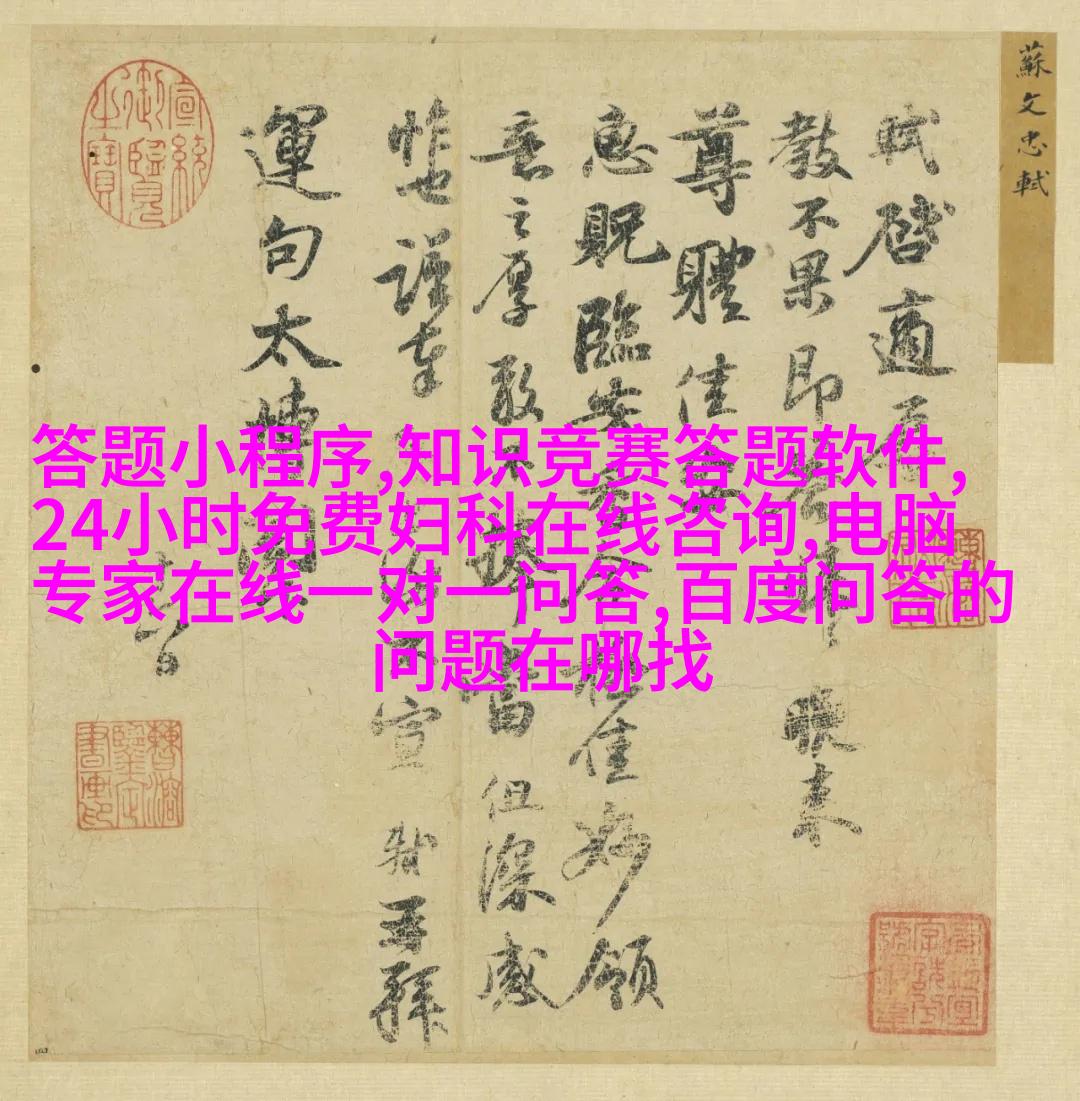 蘇文忠軾
軾啓適
教不果即晚來
尊體佳
惠貺臨安佳妙領
意之厚敢但深感
怍也謹奉宣軾再拜
運句太博
宣統御覽之寶
答题小程序,知识竞赛答题软件,
24小时免费妇科在线咨询,电脑
专家在线一对一问答,百度问答的
问题在哪找